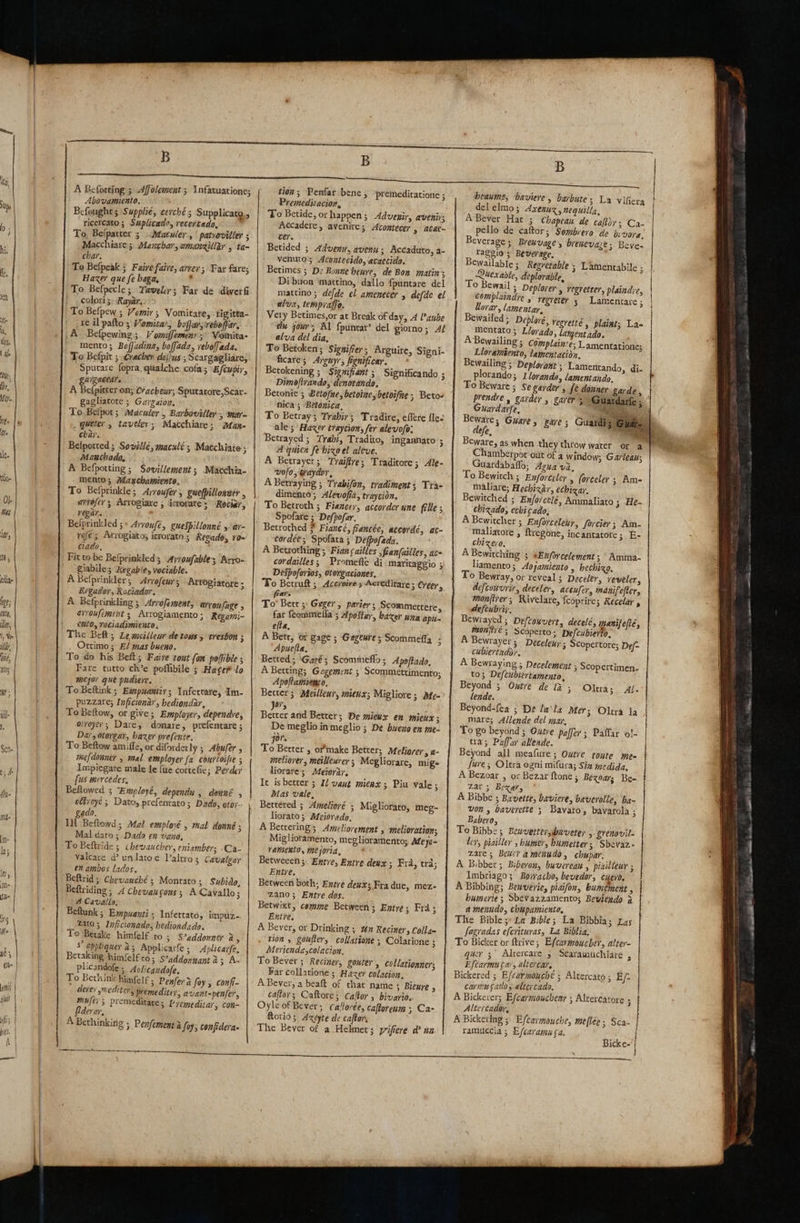 B
A Besotting ; Assolement ; Infatuatione;
Abovamiento.
Besought ; Supplié, cerché ; Supplicato,
ricercato ; Suplicado, recercado,
To Bespatter ; Maculer, patrouiller ;
Macchiare ; Manchar, amanzillàr, ta-
char.
To Bespeak ; Faire faire, arrer ; Far fare;
Hazer que se haga,
To Bespecle ; Taveler ; Far de diversi
colori ; Rayàr,
To Bespew ; Vomir ; Vomitare, rigitta-
re il pasto ; Vomitar, bossar, rebossar,
A Bespewing ; Vomissement ; Vomita-
mento ; Bossadina, bossada, rebossada.
To Bespit ; Cracher dessus ; Scargagliare,
Sputare sopra qualche cosa ; Escupir,
gargaçear.
A Bespitter on; Cracheur; Sputatore, Scar-
gagliatore ; Gargaion,
To Bespot ; Maculer, Barboviller ; mar-
queter, taveler ; Macchiare ; Man-
chàr.
Bespotted ; Sovillé, maculé ; Macchiato ;
Manchado,
A Bespotting ; Sovillement ; Macchia-
mento ; Manchamiento,
To Besprinkle ; Arrouser, guespillonner,
arroser ; Arrogiare ; irrorare ; Rociàr,
regàr.
Besprinkled ; Arrousé, guespillonné, ar-
rosé ; Arrogiato, irrorato ; Regado, ro-
ciado.
Fit to be Besprinkled ; Arrousable ; Arro-
giabile ; Regable, rociable.
A Besprinkler ; Arroseur ; Arrogiatore ;
Regador, Rociador.
A Besprinkling ; Arrosement, arrousage,
arrousement ; Arrogiamento ; Regami-
ento, rociadimiento.
The Best ; Le meilleur de tous, tresbon ;
Ottimo ; El mas bueno.
To do his Best ; Faire tout son possible ;
Fare tutto ch'e possibile ; Hazer lo
mejor que pudiere.
To Bestink ; Empuantir ; Infettare, Im-
puzzare; Inficionàr, hediondàr,
To Bestow, or give ; Employer, dependre,
otroyer ; Dare, donare, presentare ;
Dar, otorgar, hazer presente.
To Bestow amisse, or disorderly ; Abuser,
mesdonner, mal employer sa courtoisie ;
Impiegare male le sue cortesie; Perder
sus mercedes,
Bestowed ; Employé, dependu, donné,
ottroyé ; Dato, presentato ; Dado, otor-
gado.
Ill Bestowed ; Mal employé, mal donné ;
Mal dato ; Dado en vano.
To Bestride ; chevaucher, enjamber ; Ca-
valcare d'un lato e l'altro ; Cavalgar
en ambos lados.
Bestrid ; Chevauché ; Montato ; Subido,
Bestriding ; A Chevauçons ; A Cavallo ;
A Cavallo,
Bestunk ; Empuanti ; Infettato, impuz-
zato ; Inficionado, hediondado.
To Betake himself to ; S'addonner à,
s'appliquer à ; Applicarse ; Aplicarse,
Betaking himself to ; S'addonnant à ; A-
plicandose ; Aplicandose,
To Bethink himself ; Penser à soy, consi-
derer, mediter, premediter, avant-penser,
muser ; premeditare ; Premeditar, con-
siderar,
A Bethinking ; Pensement à soy, considera-
B
tion ; Pensar bene, premeditatione ;
Premeditacion,
To Betide, or happen ; Advenir, avenir ;
Accadere, avenire ; Acontecer, acae-
cer.
Betided ; Advenu, avenu ; Accaduto, a-
venuto ; Acontecido, acaecido.
Betimes ; De Bonne heure, de Bon matin ;
Di buon mattino, dallo spuntare del
mattino ; desde el amenecer, desde el
alva, temprasso.
Very Betimes, or at Break of day, A l'aube
du jour ; Al spuntar' del giorno ; Al
alva del dia,
To Betoken ; Signifier ; Arguire, Signi-
ficare ; Arguyr, significar,
Betokening ; Signifiant ; Significando ;
Dimostrando, denotando,
Betonie ; Betosne, betoine, betoisne ; Beto-
nica ; Bitònica,
To Betray ; Trahir ; Tradire, essere sle-
ale ; Hazer traycion, ser alevoso;
Betrayed ; Trahi, Tradito, ingannato ;
A quien se hizo el aleve.
A Betrayer ; Traistre ; Traditore ; Ale-
voso, traydor,
A Betraying ; Trahison, tradiment ; Tra-
dimento ; Alevosia, trayciòn.
To Betroth ; Fiancer, accorder une fille ;
Sposare ; Desposar.
Betrothed ; Fiancé, fiancée, accordé, ac-
cordée ; Sposata ; Desposada.
A Betrothing ; Fiançailles, fiansailles, ac-
cordailles ; Promesse di maritaggio ;
Desposorios, otorgaciones,
To Betrust ; Accroire ; Acreditare ; Creer,
fiar.
To Bett ; Gager, parier ; Scommettere,
far scommessa ; Apostar, hazer una apu-
esta,
A Bett, or gage ; Gageure ; Scommessa ;
Apuesta,
Betted ; Gagé ; Scommesso ; Apostado,
A Betting; Gagement ; Scommettimento,
Apostamiento,
Better ; Meilleur, mieux ; Migliore ; Me-
jor,
Better and Better ; De mieux en mieux ;
De meglio in meglio ; De bueno en me-
jòr.
To Better, or make Better; Meliorer, a-
meliorer, meilleurer ; Megliorare, mig-
liorare ; Meioràr,
It is better ; Il vaut mieux ; Piu vale ;
Mas vale,
Bettered ; Amelioré ; Migliorato, meg-
liorato ; Meiorado,
A Bettering ; Ameliorement, melioration ;
Miglioramento, meglioramento; Mejo-
ramiento, mejoria,
Betweeen ; Entre, Entre deux ; Frà, trà ;
Entre,
Between both; Entre deux; Fra due, mez-
zano ; Entre dos.
Betwixt, comme Between ; Entre ; Frà ;
Entre,
A Bever, or Drinking ; un Reciner, Colla-
tion, gouster, collatione ; Colatione ;
Merienda, colacion,
To Bever ; Reciner, gouter, collationner;
Far collatione ; Hazer colacion,
A Bever, a beast of that name ; Bieure,
castor ; Castore ; Castor, bivario.
Oyle of Bever ; Castorée, castoreum ; Ca-
storio ; Azeyte de castor,
The Bever of a Helmet ; visiere d'un
B
heaume, baviere, barbute ; La visiera
del elmo ; Axenuz, nequilla,
A Bever Hat ; Chapeau de castor ; Ca-
pello de castor ; Sombrero de bivara.
Beverage ; Breuvage, breuevage ; Beve-
raggio ; Beverage.
Bewailable ; Regretable ; Lamentabile ;
Quexable, deplorable,
To Bewail ; Deplorer, regretter, plaindre,
complaindre, regreter ; Lamentare ;
llorar, lamentar,
Bewailed ; Deploré, regretté, plaint ; La-
mentato ; Llorado, lamentado.
A Bewailing ; Complainte; Lamentatione;
Lloramiento, lamentaciòn,
Bewailing ; Deplorant ; Lamentando, di-
plorando ; Llorando, lamentando,
To Beware ; Se garder, se donner garde,
prendre, garder, garer ; Guardarsi ;
Guardarse,
Beware ; Guare, gare ; Guardi ; Guar-
dese,
Beware, as when they throw water or a
Chamberpot out of a window; Garleau;
Guardabasso; Agua và,
To Bewitch ; Ensorceler, sorceler ; Am-
maliare; Hechizàr, echizar.
Bewitched ; Ensorcelé, Ammaliato ; He-
chizado, echiçado,
A Bewitcher ; Ensorceleur, sorcier ; Am-
maliatore, stregone, incantatore ; E-
chizero,
A Bewitching ; Ensorcelement ; Amma-
liamento ; Aojamiento, hechizo,
To Bewray, or reveal ; Deceler, reveler,
descouvrir, deceler, accuser, manifester,
monstrer ; Rivelare, scoprire ; Recelar,
descubrir.
Bewrayed ; Descouvert, decelé, manifesté,
monstré ; Scoperto ; Descubierto,
A Bewrayer ; Deceleur ; Scopertore; Des-
cubiertador,
A Bewraying ; Decelement ; Scopertimen-
to ; Descubiertamento,
Beyond ; Outre de là ; Oltra ; Al-
lende.
Beyond-sea ; De la'la Mer ; Oltra la
mare ; Allende del mar,
To go beyond ; Outre passer ; Passar ol-
tra ; Passar allende.
Beyond all measure ; Outre toute me-
sure ; Oltra ogni misura; Sin medida,
A Bezoar, or Bezar stone ; Bezoar ; Be-
zar ; Bezar,
A Bibbe ; Bavette, baviere, baverolle, ba-
von, baverette ; Bavaro, bavarola ;
Babero,
To Bibbe ; Beuvetter, buveter, grenovil-
ler, piailler, humer, humetter ; Sbevaz-
zare ; Bever a menudo, chupar,
A Bibber ; Biberon, buvereau, piailleur ;
Imbriago ; Borracho, bevedor, cuero,
A Bibbing; Beuverie, piaison, humement,
humerie ; Sbevazzamento; Beviendo à
a menudo, chupamiento,
The Bible ; La Bible ; La Bibbia ; Las
sagradas escrituras, La Biblia,
To Bicker or strive ; Escarmoucher, alter-
quer ; Altercare ; Scaramuchiare ;
Escarmuçar, altercar,
Bickered ; Escarmouché ; Altercato ; Es-
carmuçado, altercado,
A Bickerer; Escarmoucheur ; Altercatore ;
Altercador,
A Bickering ; Escarmouche, meslée ; Sca-
ramuccia ; Escaramuça,
Bicke-